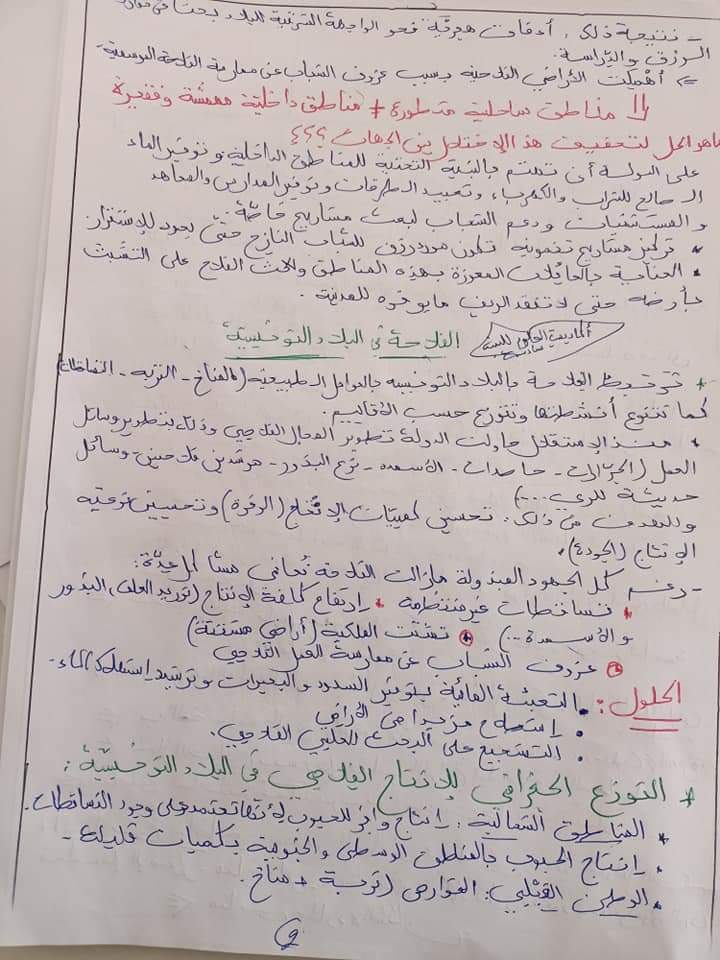 - نتيجة ذلك، تدفقات هجرية نحو الواجهة الشرقية للبلاد بحثا في موارد
الرزق والدراسة.
=> أهملت الأراضي الفلاحية بسبب عزوف الشباب عن ممارسة الفلاحة
مناطق ساحلية متطورة + مناطق داخلية مهمشة وفقيرة
ماهو الحل لتخفيف هذا الإختلال بين الجهات ؟؟؟
على الدولة أن تهتم بالبنية التحتية للمناطق الداخلية وتوفير الماء
الصالح للشراب والكهرباء وتعبيد الطرقات وتوفير المدارس والمعاهد
والمستشفيات ودعم الشباب لبعث مشاريع خاصة
* تركيز مشاريع تنموية تكون مورد رزق للشباب النازح حتى يعود للإستقرار
* العناية بالعائلات المعوزة بهذه المناطق والحث الفلاح على التشبث
بأرضه حتى لا تفقد الريف ما يوفره للمدينة.
الفلاحة في البلاد التونسية
* ترتبط الفلاحة بالبلاد التونسية بالعوامل الطبيعية (المناخ - التربة - التساقطات)
كما تتنوع أنشطتها وتتوزع حسب الأقاليم.
* منذ الإستقلال حاولت الدولة تطوير المجال الفلاحي وذلك بتطوير وسائل
العمل (الجرارات - حاصدات - الأسمدة - نوع البذور - مرشدين فلاحيين - وسائل
حديثة للري ....)
والهدف من ذلك. تحسين كميات الإنتاج (الوفرة) وتحسين نوعية
الإنتاج (الجودة).
- رغم كل الجهود المبذولة مازالت الفلاحة تعاني مشاكل عدة:
* تساقطات غير منتظمة * إرتفاع كلفة الإنتاج (توريد العلف، البذور
والأسمدة...) * تشتت الملكية (أراضي مشتتة)
* عزوف الشباب عن ممارسة العمل الفلاحي
الحلول: • التعبئة المائية بتوفير السدود والبحيرات وترشيد إستهلاك الماء.
• إستصلاح مزيدا من الأراضي
• التشجيع على البحث العلمي الفلاحي.
* التوزع الجغرافي للإنتاج الفلاحي في البلاد التونسية:
* المناطق الشمالية: إنتاج وافر للحبوب لأنها تعتمد على وجود التساقطات.
* إنتاج الحبوب بالمناطق الوسطى والجنوبية بكميات قليلة -
* الوطن القبلي: القوارص (تربة + مناخ).